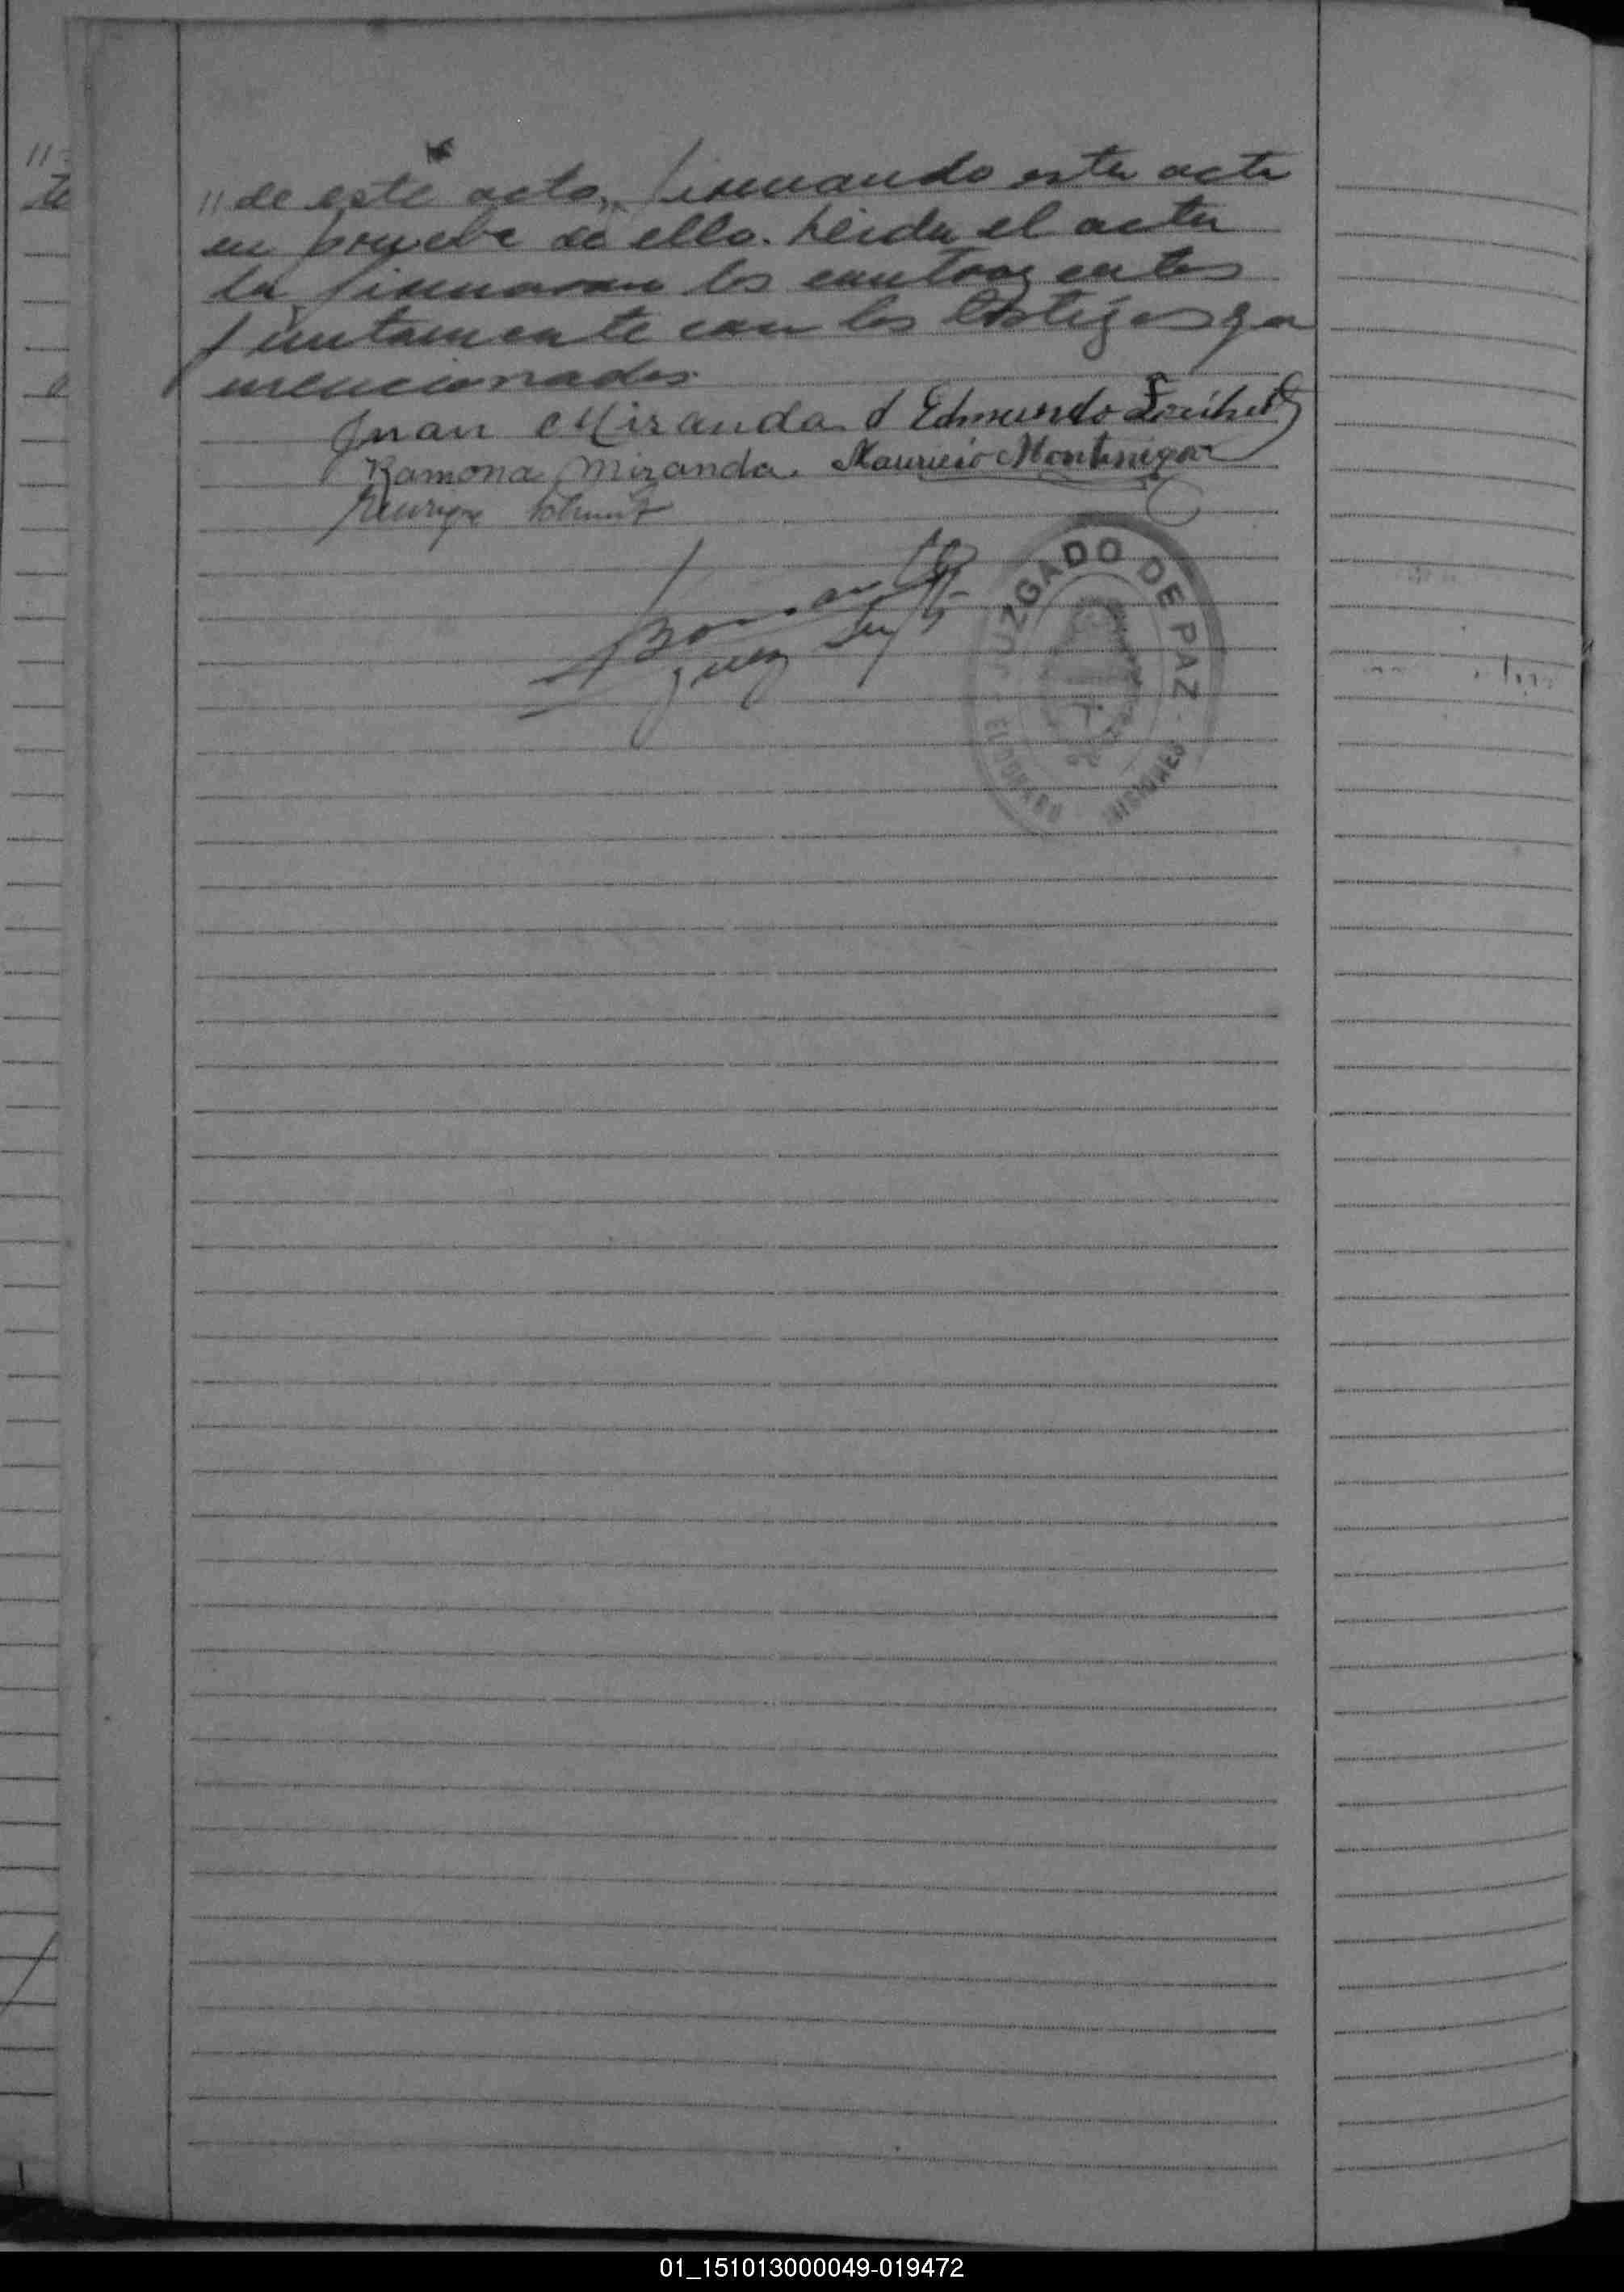 11
te
" de este acto, firmando esta acta
en prueba de ello. Leída el acta
la firmaron los contrayentes
juntamente con los testigos ya
mencionados
Juan Miranda Edmundo
Ramona Miranda. Mauricio Montenegro
Juez
JUZGADO DE PAZ
ELDORADO MISIONES
01_151013000049-019472